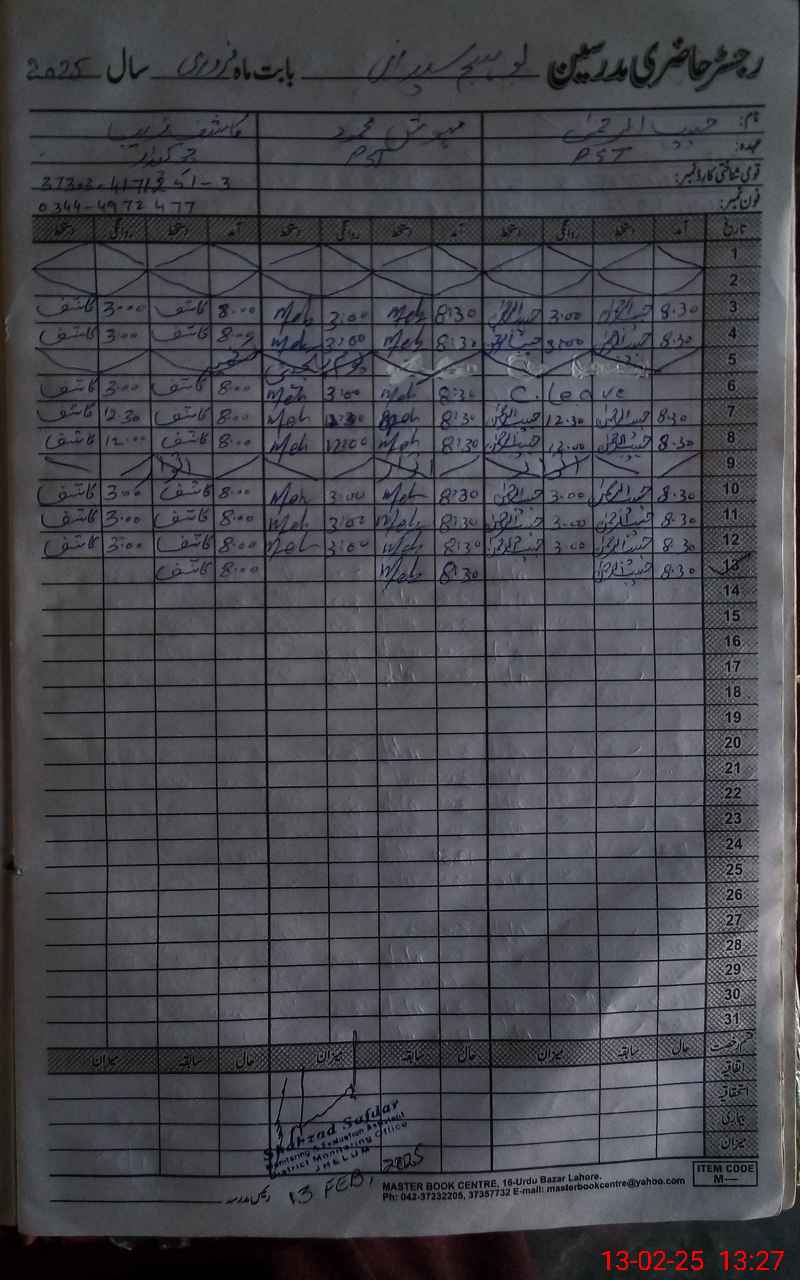 رجسٹر حاضری مدرسین بابت ماہ فروری سال 2025
نام: حبیب الرحمٰن مہوش محمود کاشف
عہدہ: PST PST چوکیدار
قومی شناختی کارڈ نمبر:
فون نمبر: 0344-4972477
تاریخ آمد دستخط روانگی دستخط آمد دستخط روانگی دستخط آمد دستخط روانگی دستخط
1
2
3 8:30 حبیب الرحمٰن 3:00 حبیب الرحمٰن 8:30 Meh 3:00 Meh 8:00 کاشف 3:00 کاشف
4 8:30 حبیب الرحمٰن 3:00 حبیب الرحمٰن 8:30 Meh 3:00 Meh 8:00 کاشف 3:00 کاشف
5 یوم یکجہتی کشمیر
6 C. Leave 8:30 Meh 3:00 Meh 8:00 کاشف 3:00 کاشف
7 8:30 حبیب الرحمٰن 12:30 حبیب الرحمٰن 8:30 Meh 12:30 Meh 8:00 کاشف 12:30 کاشف
8 8:30 حبیب الرحمٰن 12:00 حبیب الرحمٰن 8:30 Meh 12:00 Meh 8:00 کاشف 12:00 کاشف
9 اتوار اتوار اتوار
10 8:30 حبیب الرحمٰن 3:00 حبیب الرحمٰن 8:30 Meh 3:00 Meh 8:00 کاشف 3:00 کاشف
11 8:30 حبیب الرحمٰن 3:00 حبیب الرحمٰن 8:30 Meh 3:00 Meh 8:00 کاشف 3:00 کاشف
12 8:30 حبیب الرحمٰن 3:00 حبیب الرحمٰن 8:30 Meh 3:00 Meh 8:00 کاشف 3:00 کاشف
13 8:30 حبیب الرحمٰن 8:30 Meh 8:00 کاشف
14
15
16
17
18
19
20
21
22
23
24
25
26
27
28
29
30
31
قسم رخصت حال سابقہ میزان حال سابقہ میزان حال سابقہ میزان
اتفاقیہ
استحقاقیہ
بیماری
میزان
Shahzad Safdar
Monitoring & Evaluation Assistant
District Monitoring Office
JHELUM
رئیس مدرسہ 13 FEB, 2025
MASTER BOOK CENTRE, 16-Urdu Bazar Lahore.
Ph: 042-37232205, 37357732 E-mail: masterbookcentre@yahoo.com
ITEM CODE
M----
13-02-25 13:27